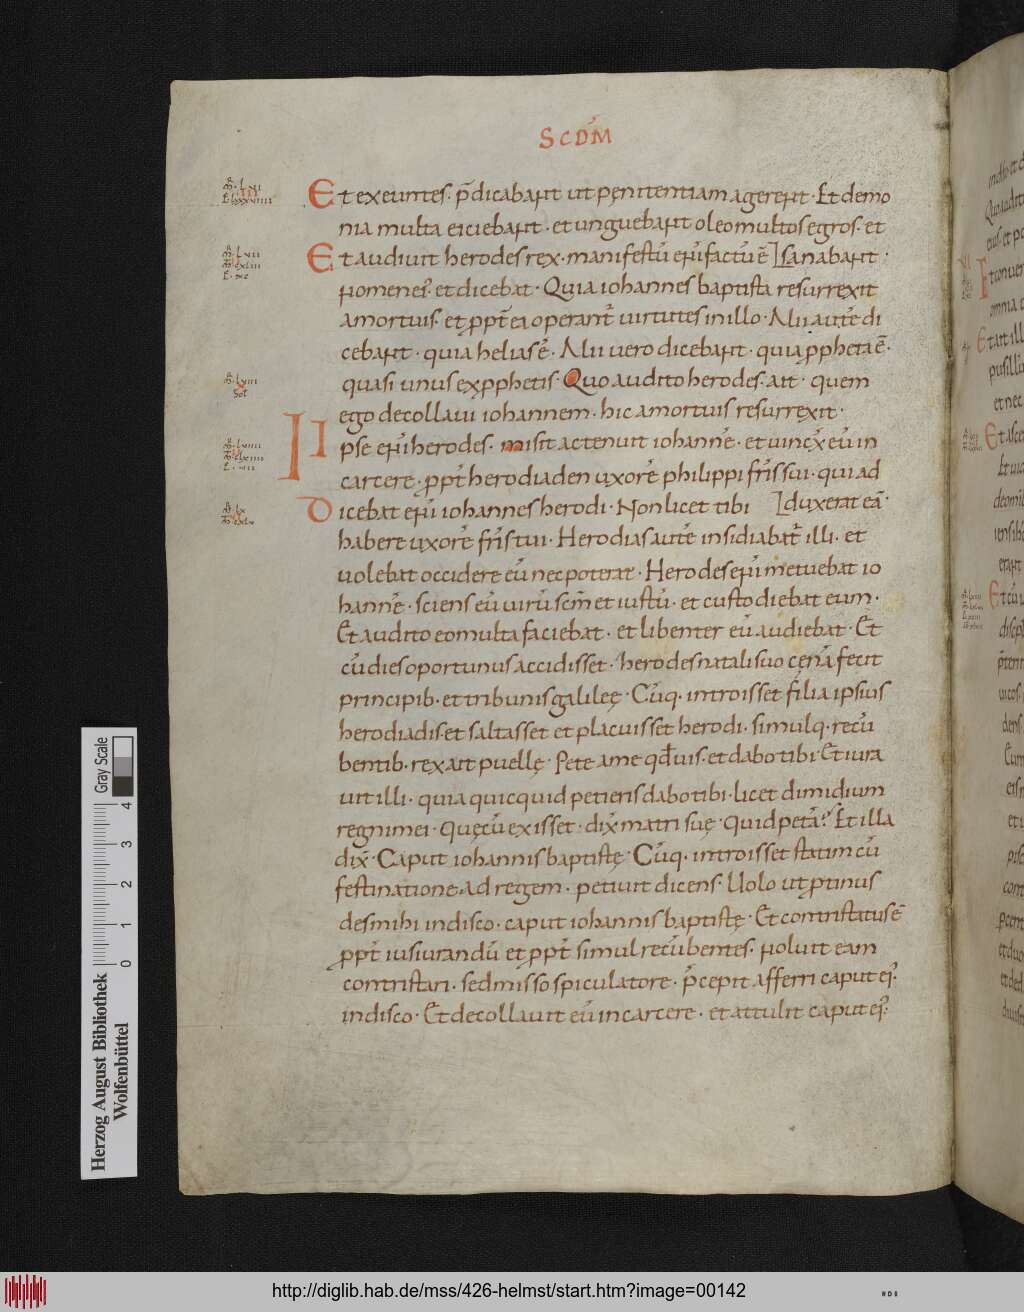 SCDM̄
Et exeuntes· p̄dicabant ut pęnitentiam agerent· Et demo
nia multa eiciebant· et unguebant oleo multos egros· et
Et audiuit herodes rex· manifestū eni̅ factū ē sanabant·
nomen ei᾿· et dicebat· Quia iohannes baptista resurrexit
amortuis· et ppt̄ ea operant᾿ uirtutes in illo· Alii autē di
cebant· quia helias ē· Alii uero dicebant· quia ppheta ē·
quasi unus ex pphetis· Quo audito herodes· ait· quem
ego decollaui iohannem· hic amortuis resurrexit·
Ipse eni̅ herodes· misit ac tenuit iohannē· et uincx̄ eū in
carcere· ppt̄ herodiaden uxorē philippi fr̄is sui· qui ad
Dicebat eni̅ iohannes herodi· Non licet tibi duxerat eā·
habere uxorē fr̄is tui· Herodias autē insidiabat᾿ illi· et
uolebat occidere eū nec poterat· Herodes eni̅ metuebat io
hannē· sciens eū uirū scm̄ et iustū· et custodiebat eum·
Et audito eo multa faciebat· et libenter eū audiebat· Et
cū dies oportunus accidisset· herodes natali suo cęnā fecit
principib· et tribunis galileę· Cūq· introisset filia ipsius
herodiadis· et saltasset et placuisset herodi· simulq· recū
bentib· rex ait puellę· Pete ame qd̄ uis· et dabo tibi· Et iura
uit illi· quia quicquid petieris dabo tibi· licet dimidium
regni mei· Quę cū exisset· dix̄ matri suę· Quid petā? Et illa
dix̄· Caput iohannis baptistę· Cūq· introisset statim cū
festinatione ad regem· petiuit dicens· Uolo ut ptinus
des mihi in disco· caput iohannis baptistę· Et contristatus ē
ppt̄ iusiurandū et ppt̄ simul recūbentes· noluit eam
contristari· sed misso spiculatore· p̄cepit afferri caput ei᾿·
in disco· Et decollauit eū in carcere· et attulit caput ei᾿·
Herzog August Bibliothek
Wolfenbüttel
0 1 2 3 4
Gray Scale
http://diglib.hab.de/mss/426-helmst/start.htm?image=00142